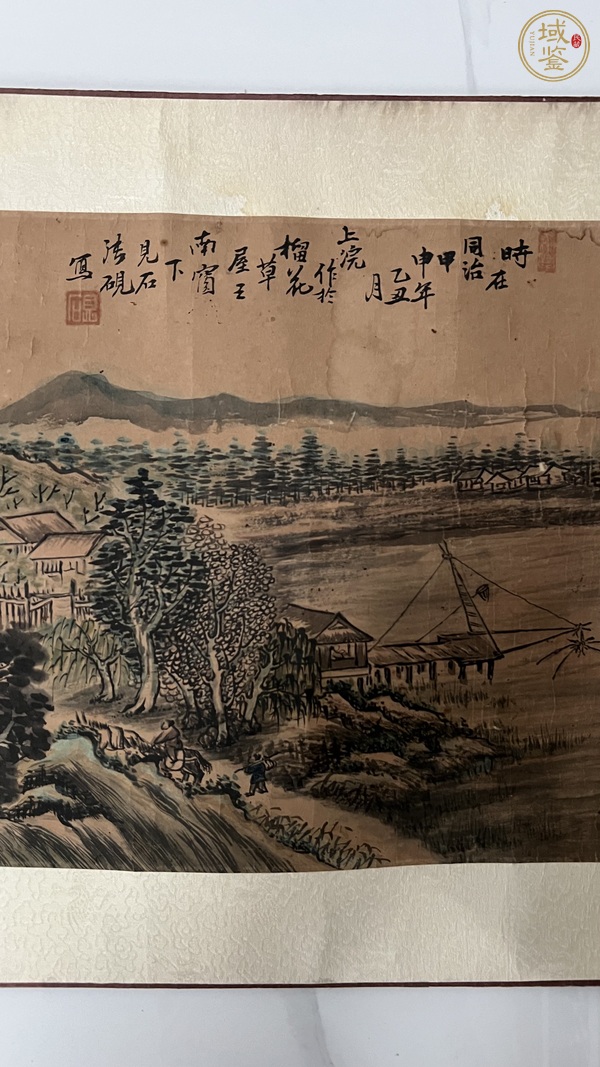 域鉴
YUJIAN
時
在
同治
甲
申年
乙丑
月
上浣
作於
榴花
草
屋
南窗
下
見石
硯
寫